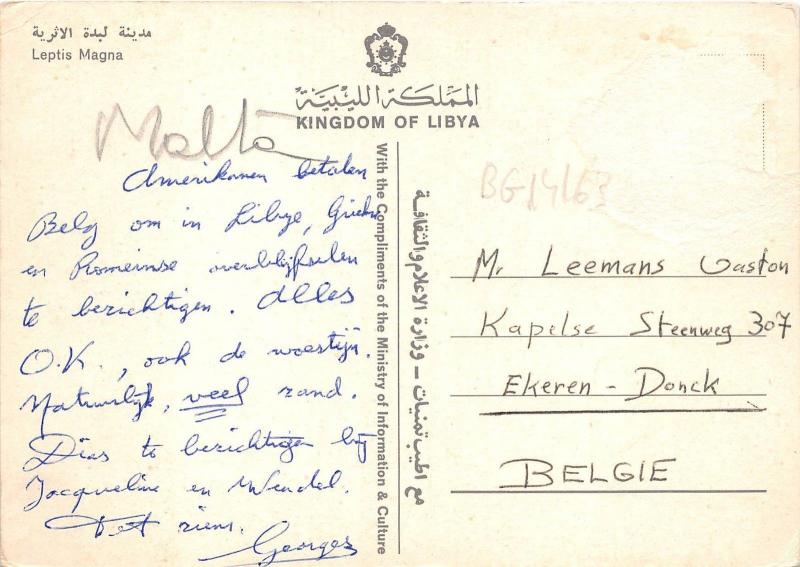 مدينة لبدة الاثرية
Leptis Magna
المملكة الليبية
KINGDOM OF LIBYA
Malta
Amerikanen betalen
Belg om in Libye, Griekse
en Romeinse overblijfselen
te bezichtigen. Alles
O.K., ook de woestijn.
Natuurlijk, veel zand.
Dias te bezichtigen bij
Jacqueline en Wendel.
Tot ziens.
Georges
With the Compliments of the Ministry of Information & Culture
مع اطيب تمنيات - وزارة الاعلام والثقافة
BG14163
Mr Leemans Gaston
Kapelse Steenweg 307
Ekeren - Donck
BELGIE